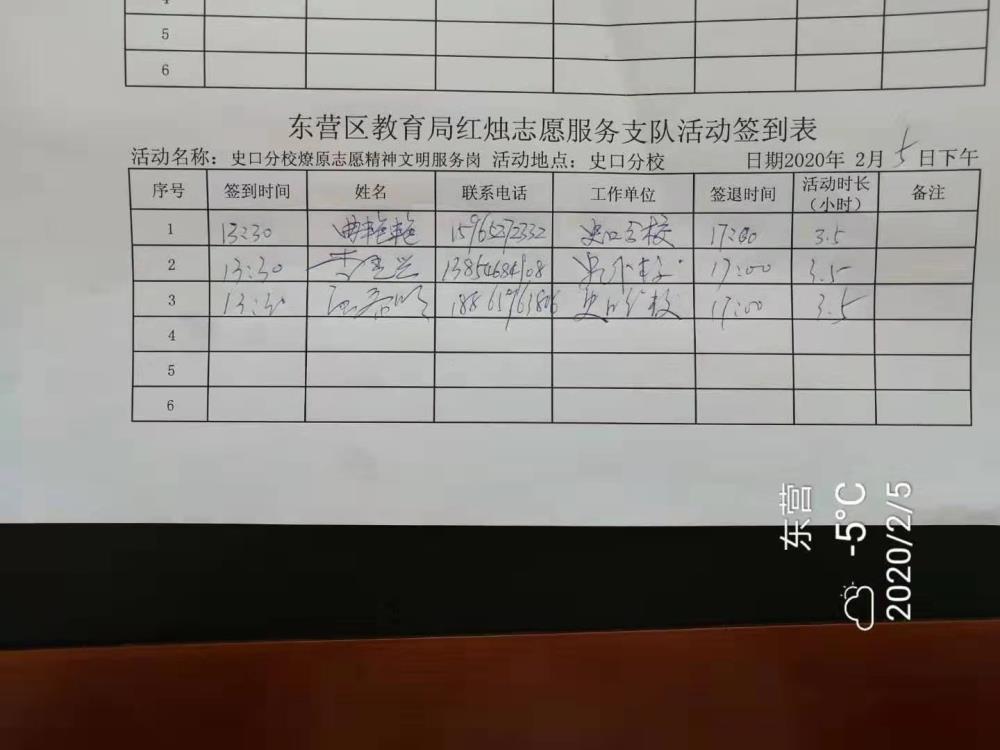 5
6
东营区教育局红烛志愿服务支队活动签到表
活动名称：史口分校燎原志愿精神文明服务岗 活动地点：史口分校 日期2020年 2月 5 日下午
序号 签到时间 姓名 联系电话 工作单位 签退时间 活动时长（小时） 备注
1 13:30 曲艳艳 15965272332 史口分校 17:00 3.5
2 13:30 13854684908 17:00 3.5
3 13:30 18861963806 史口分校 17:00 3.5
4
5
6
东营
-5°C
2020/2/5